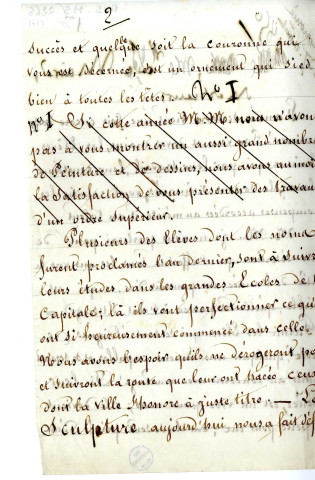 2
succès et quelque soit la couronne qui
vous est décernée, c'est un ornement qui sied
bien à toutes les têtes. No I
No I Si cette année M.M. nous n'avons
pas à vous montrer un aussi grand nombre
de Peinture et de dessins, nous avons au moins
la satisfaction de vous présenter des travau
d'un ordre supérieur.
Plusieurs des Elèves dont les noms
furent proclamés l'an dernier, sont à suivre
leurs études dans les grandes Ecoles de l
Capitale; là ils vont perfectionner ce qu'
ont si heureusement commencé dans celle.
Nous avons l'espoir qu'ils ne dérogeront p
et suivront la route que leur ont tracée ceux
dont la ville s'honore à juste titre. — La
Sculpture aujourd'hui nous a fait déf